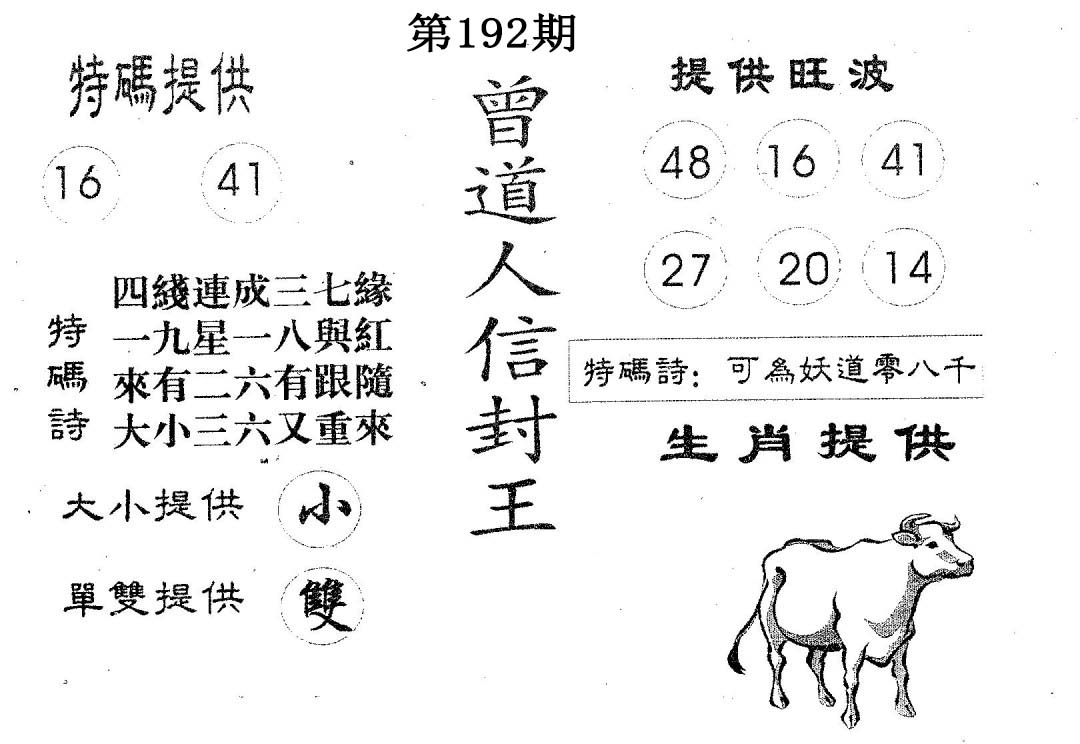 第192期
特碼提供
16 41
四綫連成三七緣
一九星一八與紅
來有二六有跟隨
大小三六又重來
特碼詩
大小提供 小
單雙提供 雙
曾道人信封王
提供旺波
48 16 41
27 20 14
特碼詩：可為妖道零八千
生肖提供